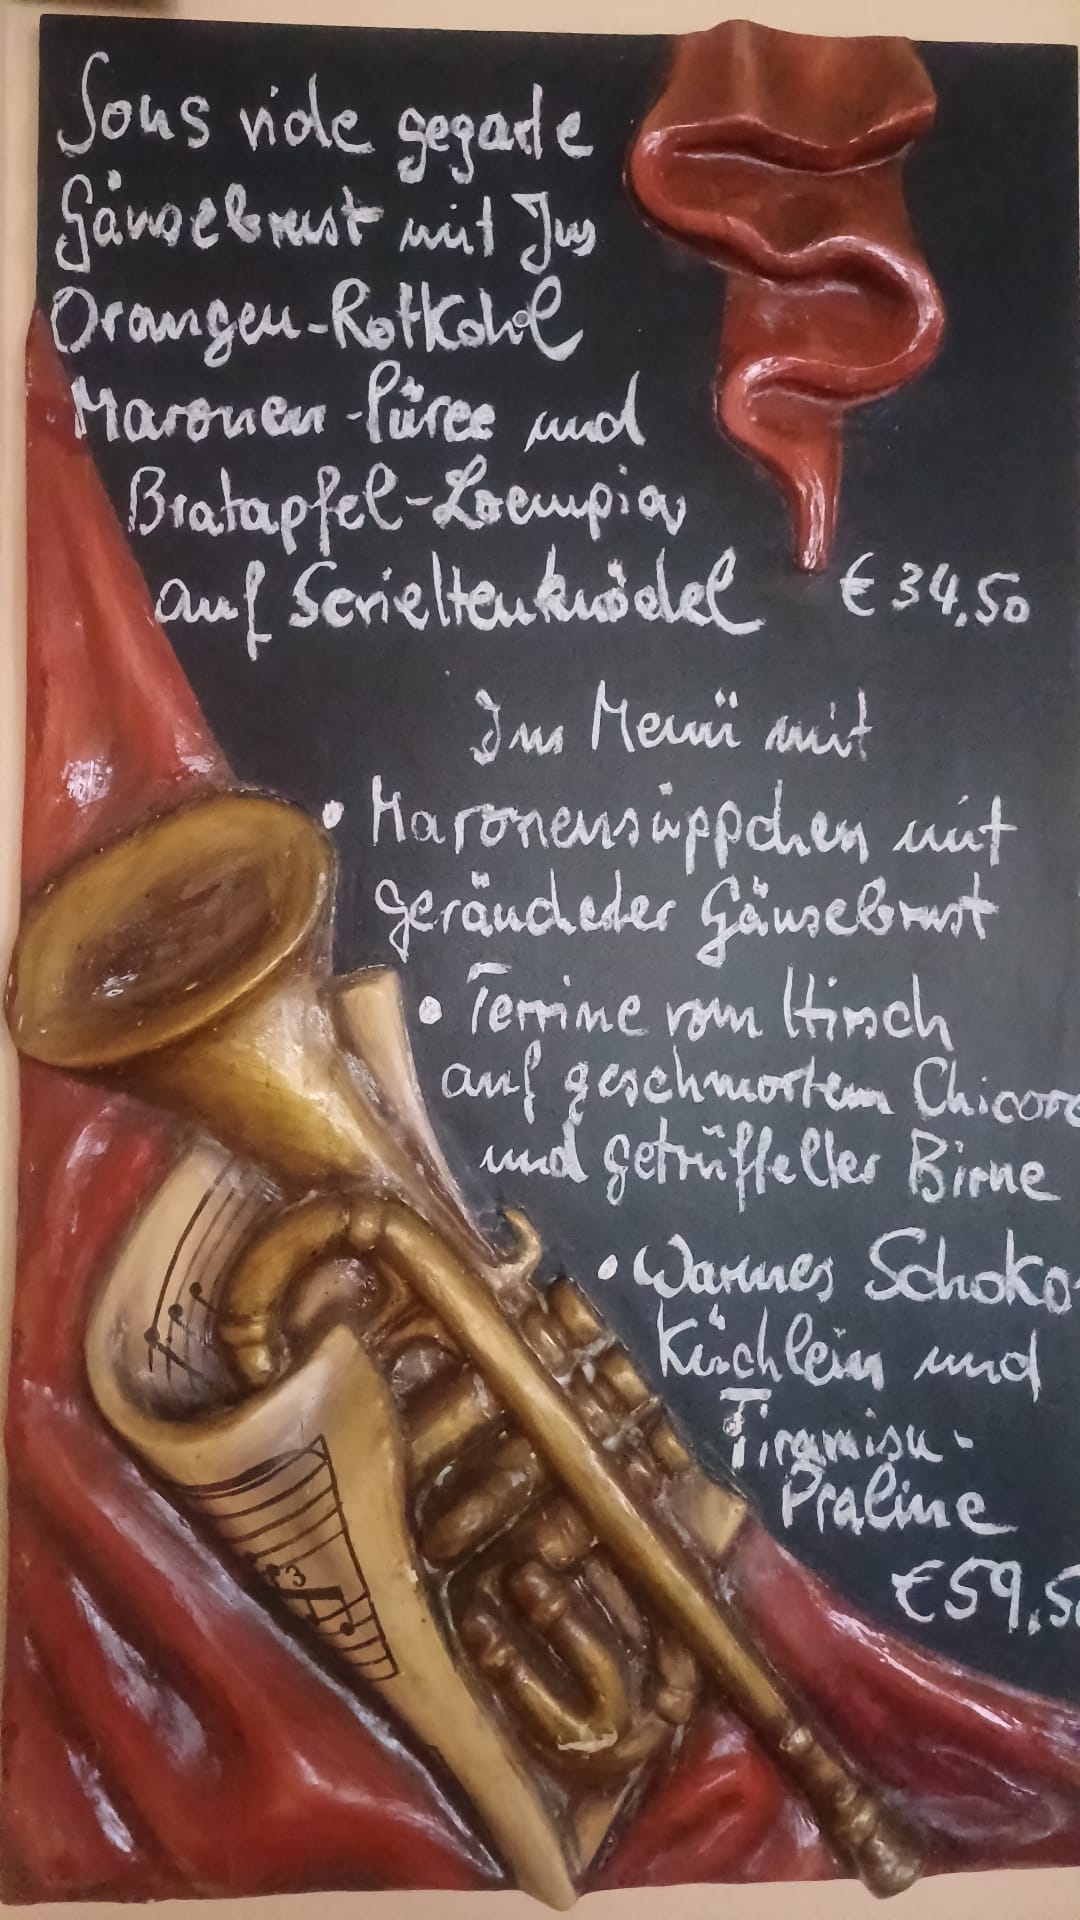 Sous vide gegarte
Gänsebrust mit Jus
Orangen-Rotkohl
Maronen-Püree und
Bratapfel-Loempia
auf Serviettenknödel € 34,50
Im Menü mit
• Maronensüppchen mit
geräucherter Gänsebrust
• Terrine vom Hirsch
auf geschmortem Chicoré
und getrüffelter Birne
• Warmes Schoko-
Küchlein und
Tiramisu-
Praline
€ 59,5
3